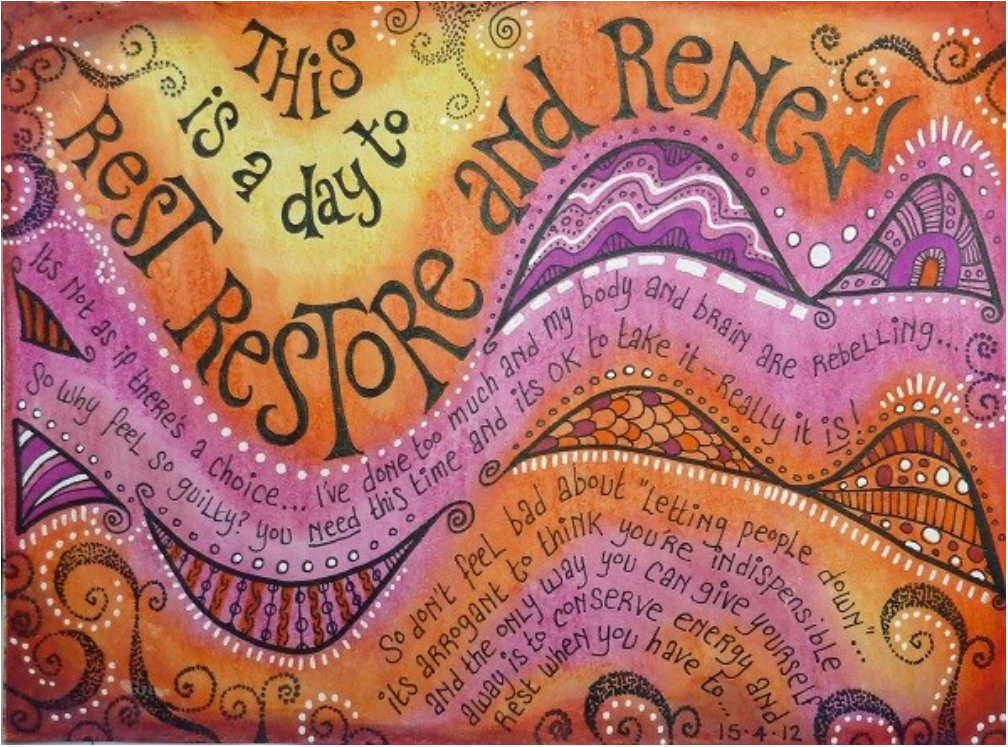 THiS
is a
day to
ReST ReSToRe and ReNeW
Its Not as if there's a choice... I've done too much and my body and brain are rebelling...
So why feel so guilty? you need this time and its OK to take it - Really it is!
So don't feel bad about "Letting people down"...
its arrogant to think you're indispensible
and the only way you can give yourself
away is to conserve energy and
Rest when you have to...
15.4.12